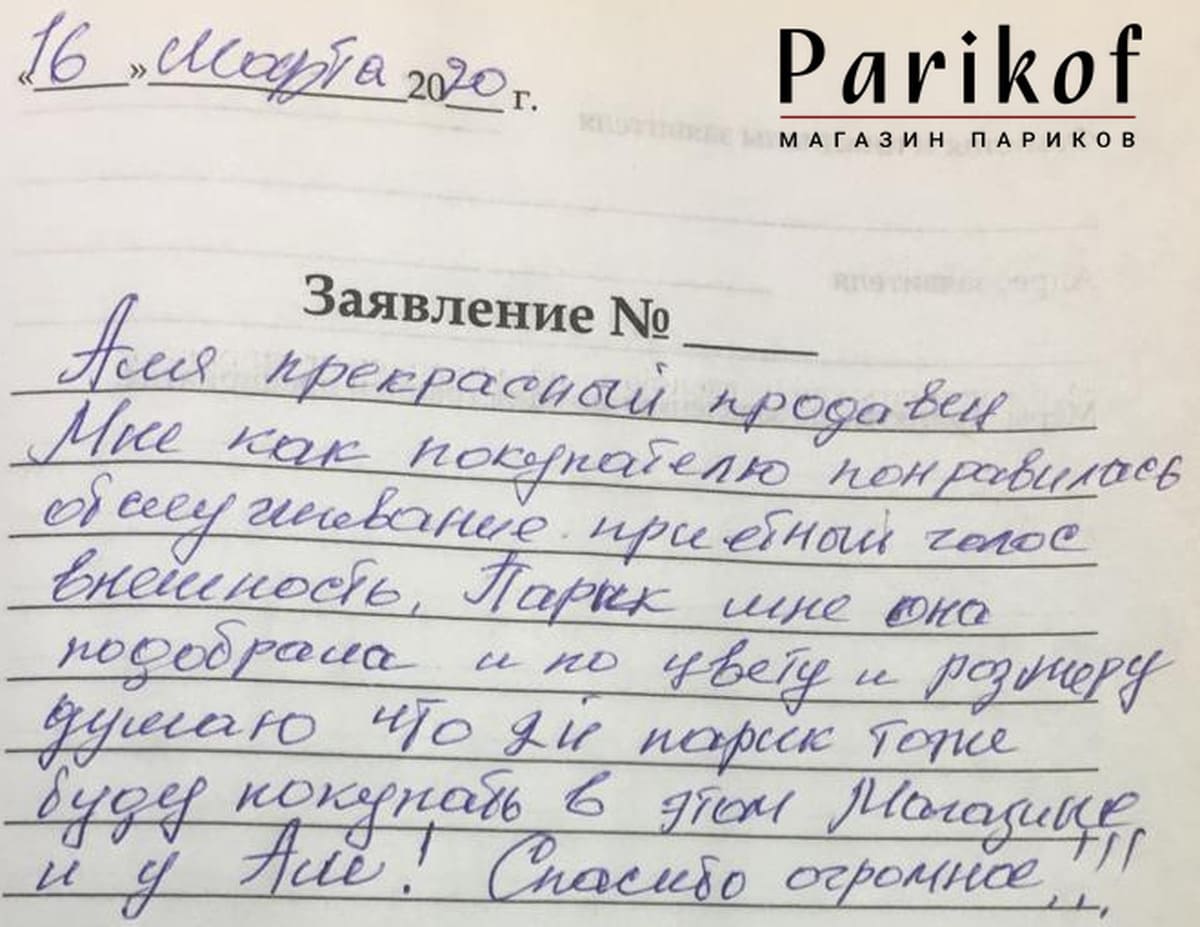 «16» Марта 2020 г.
Parikof
МАГАЗИН ПАРИКОВ
Заявление № ____
Аля прекрасный продавец
Мне как покупателю понравилась
обслуживание. приетный голос
внешность. Парик мне она
подобрала и по цвету и розмеру
думаю что 2й парик тоже
буду покупать в этом Магазине
и у Али! Спасибо огромное..!!!